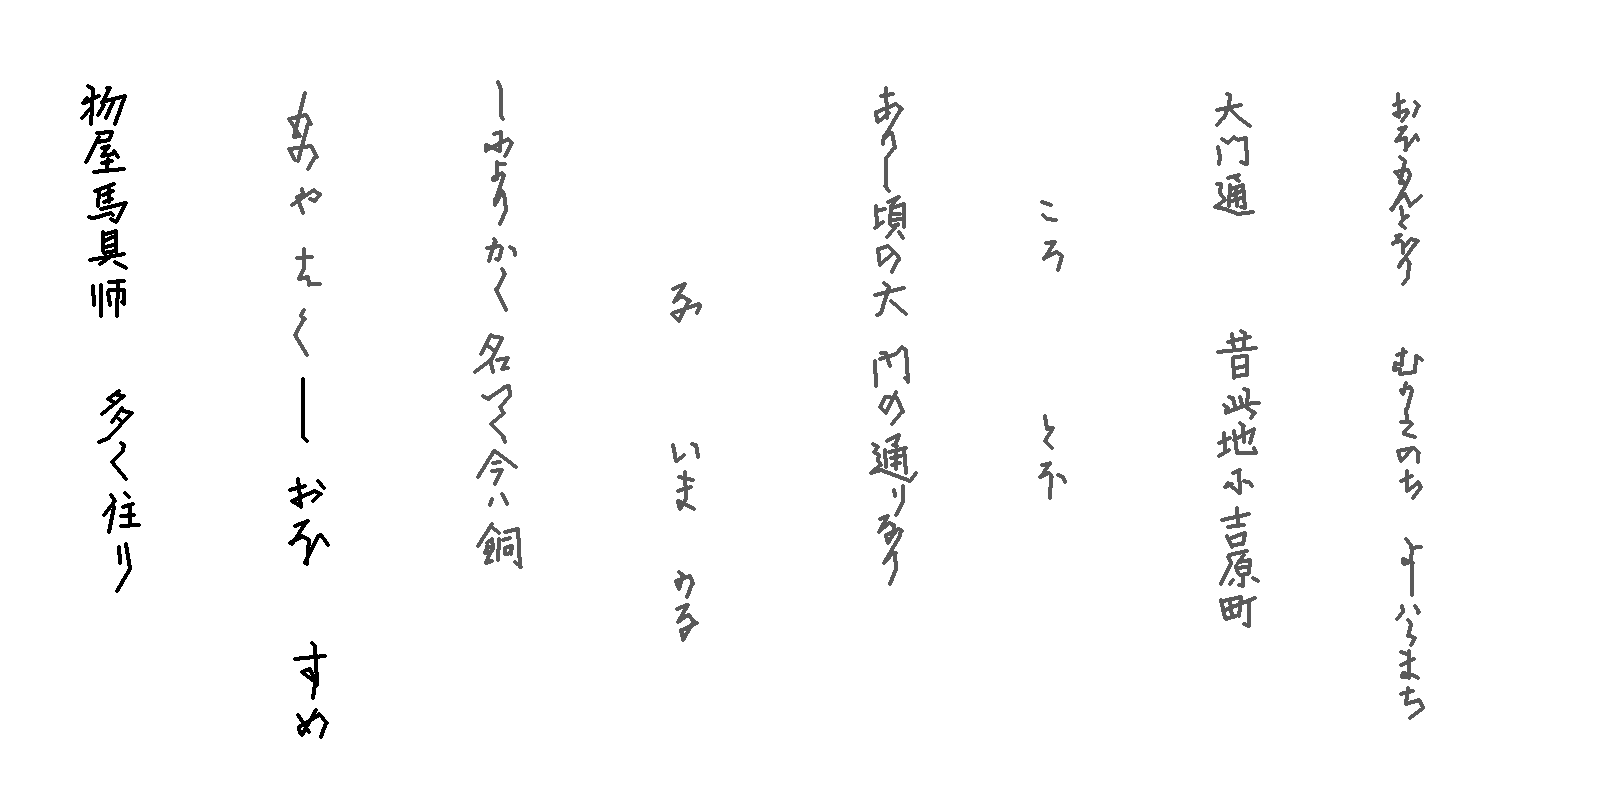 おほもんとをり　むかしのち　よしハらまち
大門通　昔此地に吉原町
ころ　とほ
ありし頃の大門の通りなり
な　いま　かな
しによりかく名つく今ハ銅
ものやはくし　おほ　すめ
物屋馬具師　多く住り